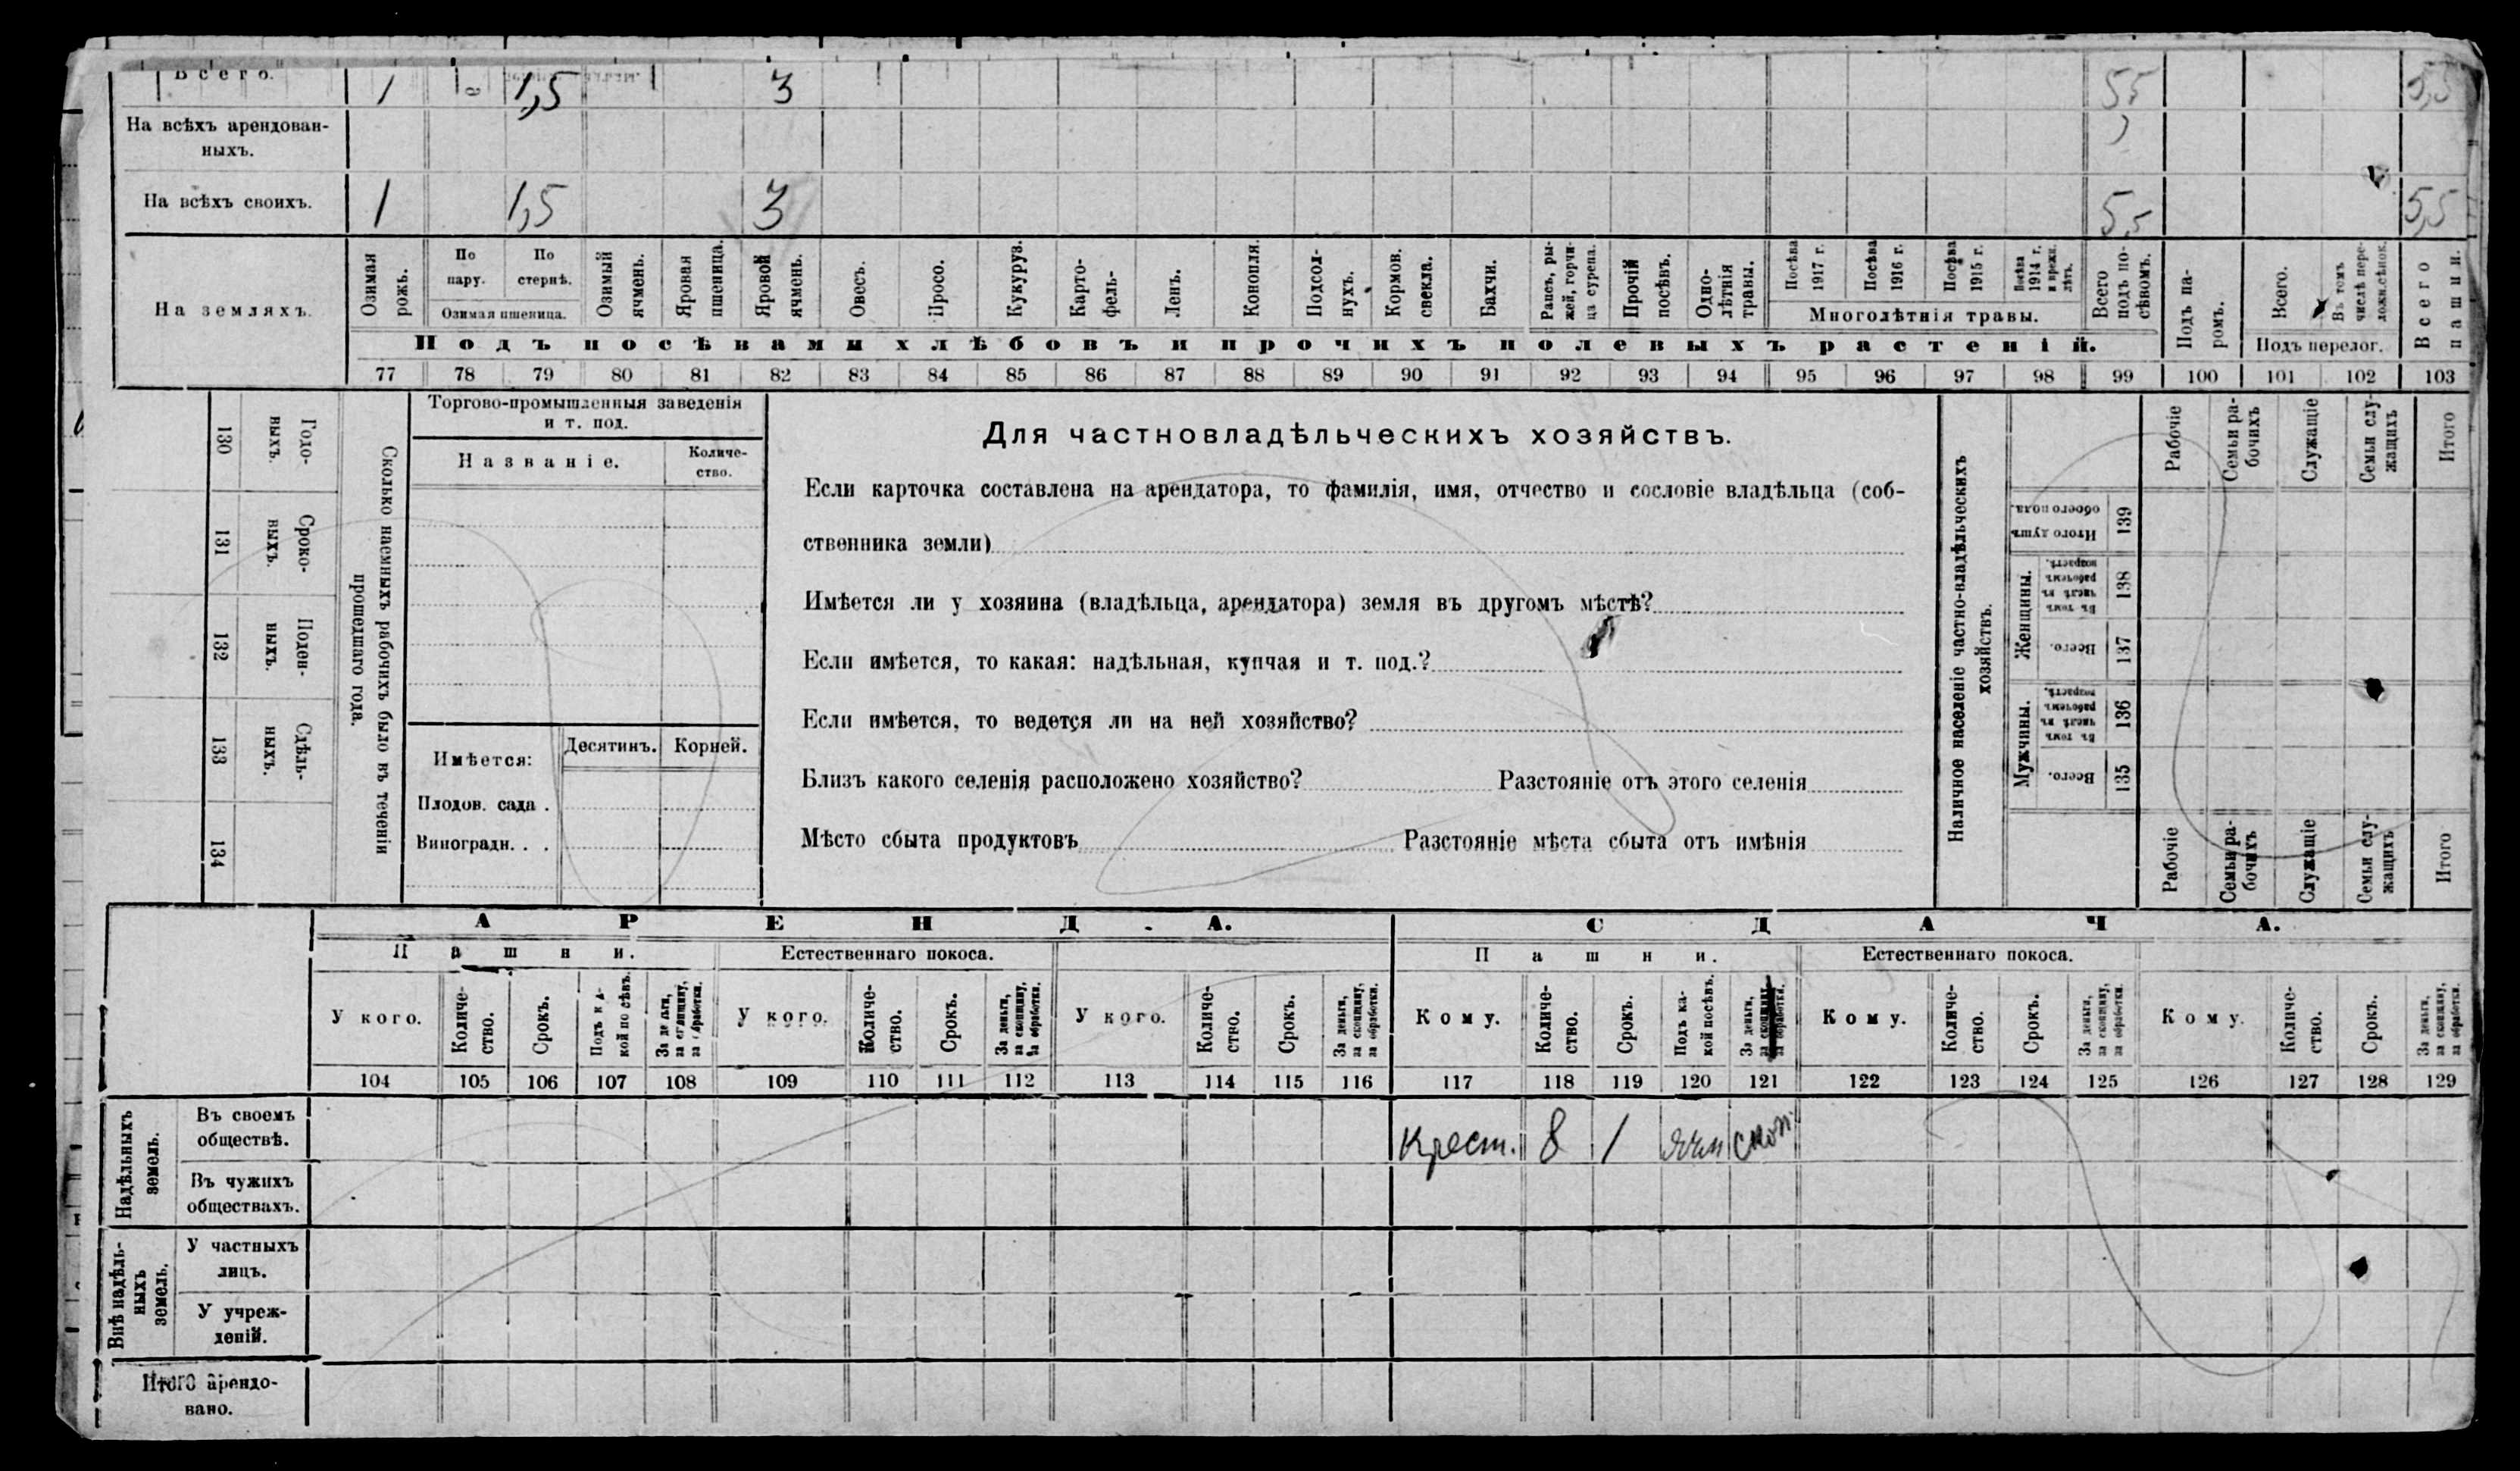 Всего. 1 1,5 3 5,5 5,5
На всѣхъ арендован-
ныхъ.
На всѣхъ своихъ. 1 1,5 3 5,5 5,5
На земляхъ.
Озимая рожь.
По пару.
По стернѣ.
Озимая пшеница.
Озимый ячмень.
Яровая пшеница.
Яровой ячмень.
Овесъ.
Просо.
Кукуруз.
Карто-
фель-
Ленъ.
Конопля.
Подсол-
нухъ.
Кормов. свекла.
Бахчи.
Рапсъ, ры-
жей, горчи-
ца сурепа.
Прочій посѣвъ.
Одно-
лѣтнія травы.
Посѣва 1917 г.
Посѣва 1916 г.
Посѣва 1915 г.
Посѣва 1914 г. и прежн. лѣтъ.
Многолѣтнія травы.
Всего подъ по-
сѣвомъ.
Подъ посѣвами хлѣбовъ и прочихъ полевыхъ растеній.
Подъ па-
ромъ.
Всего.
Въ томъ числѣ пере-
ложн.сѣнок.
Подъ перелог.
Всего пашни.
77 78 79 80 81 82 83 84 85 86 87 88 89 90 91 92 93 94 95 96 97 98 99 100 101 102 103
Сколько наемныхъ рабочихъ было въ теченіи
прошедшаго года.
Годо-
выхъ.
130
Сроко-
выхъ.
131
Поден-
ныхъ.
132
Сдѣль-
ныхъ.
133
134
Торгово-промышленныя заведенія
и т. под.
Названіе.
Количе-
ство.
Имѣется:
Десятинъ. Корней.
Плодов. сада .
Виноградн. . .
Для частновладѣльческихъ хозяйствъ.
Если карточка составлена на арендатора, то фамилія, имя, отчество и сословіе владѣльца (соб-
ственника земли)
Имѣется ли у хозяина (владѣльца, арендатора) земля въ другомъ мѣстѣ?
Если имѣется, то какая: надѣльная, купчая и т. под.?
Если имѣется, то ведется ли на ней хозяйство?
Близъ какого селенія расположено хозяйство? Разстояніе отъ этого селенія
Мѣсто сбыта продуктовъ Разстояніе мѣста сбыта отъ имѣнія
Наличное населеніе частно-владѣльческихъ
хозяйствъ.
Рабочіе
Семьи ра-
бочихъ
Служащіе
Семьи слу-
жащихъ
Итого
Итого душъ обоего пола.
139
Женщины.
Въ томъ числѣ въ рабочемъ возрастѣ.
138
Всего.
137
Мужчины.
Въ томъ числѣ въ рабочемъ возрастѣ.
136
Всего.
135
Рабочіе
Семьи ра-
бочихъ
Служащіе
Семьи слу-
жащихъ
Итого
АРЕНДА. СДАЧА.
Пашни. Естественнаго покоса. Пашни. Естественнаго покоса.
У кого.
Количе-
ство.
Срокъ.
Подъ ка-
кой посѣвъ.
За деньги, за скопщину, за обработки.
У кого.
Количе-
ство.
Срокъ.
За деньги, за скопщину, за обработки.
У кого.
Количе-
ство.
Срокъ.
За деньги, за скопщину, за обработки.
Кому.
Количе-
ство.
Срокъ.
Подъ ка-
кой посѣвъ.
За деньги, за скопщину, за обработки.
Кому.
Количе-
ство.
Срокъ.
За деньги, за скопщину, за обработки.
Кому.
Количе-
ство.
Срокъ.
За деньги, за скопщину, за обработки.
104 105 106 107 108 109 110 111 112 113 114 115 116 117 118 119 120 121 122 123 124 125 126 127 128 129
Надѣльныхъ
земель.
Въ своемъ
обществѣ.
Крест. 8 1 ячм скоп.
Въ чужихъ
обществахъ.
Внѣ надѣль-
ныхъ
земель.
У частныхъ
лицъ.
У учреж-
деній.
Итого арендо-
вано.